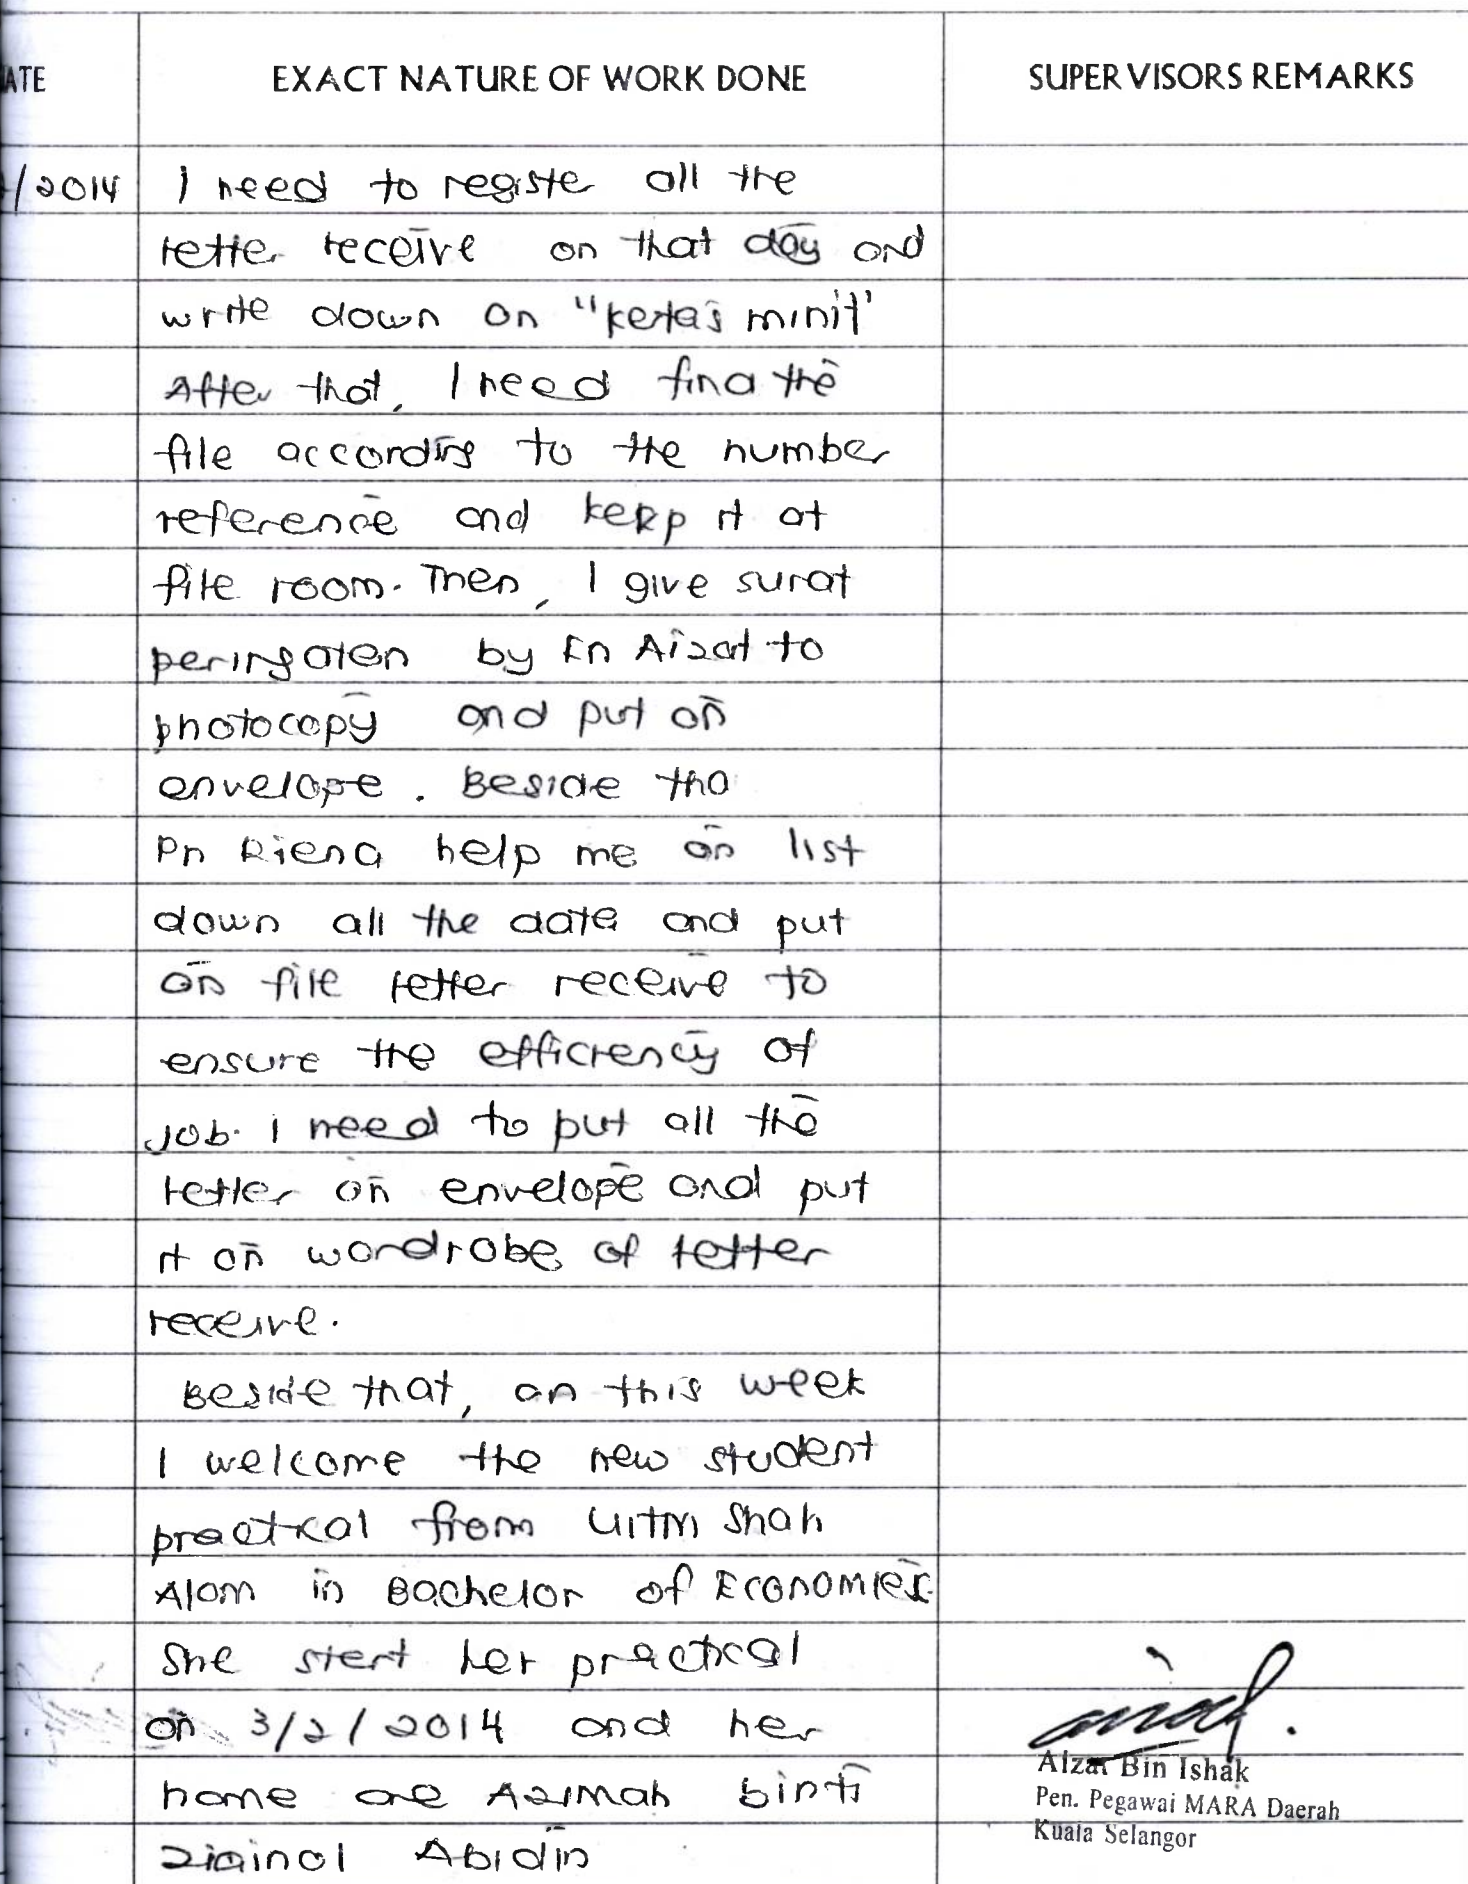 ATE
EXACT NATURE OF WORK DONE
SUPERVISORS REMARKS
/2014
I need to registe all the
lette receive on that day and
write down on "kertas minit"
After that, I need find the
file according to the number
reference and keep it at
file room. Then, I give surat
peringatan by En Aizat to
photocopy and put on
envelope. Beside tha
Pn Riena help me on list
down all the date and put
on file letter receive to
ensure the efficiency of
job. I need to put all the
letter on envelope and put
it on wardrobe of letter
receive.
Beside that, on this week
I welcome the new student
practical from UiTM Shah
Alam in Bachelor of Economics.
She start her practical
on 3/2/2014 and her
name are Azimah binti
Ziainal Abidin
Aizat Bin Ishak
Pen. Pegawai MARA Daerah
Kuala Selangor